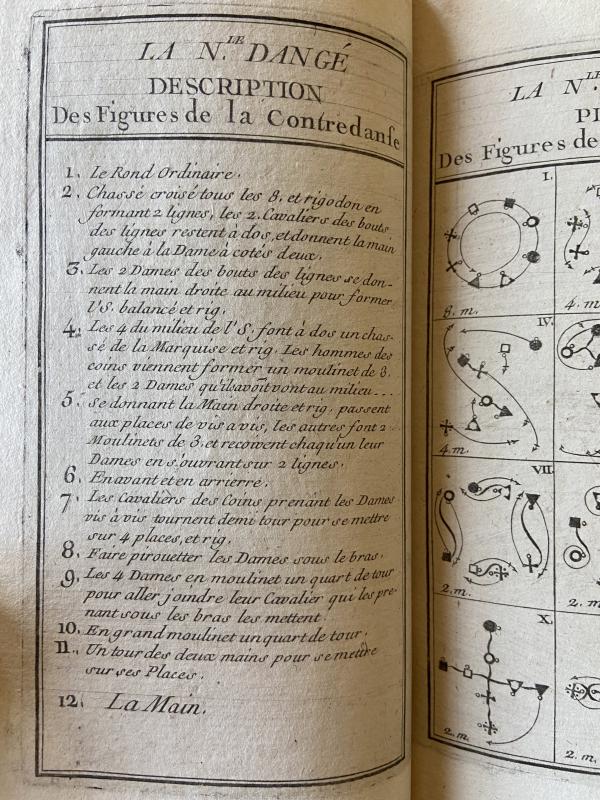 LA N.LE DANGÉ
DESCRIPTION
Des Figures de la Contredanse
1. Le Rond Ordinaire.
2. Chassé croisé tous les 8. et rigodon en
formant 2 lignes, les 2. Cavaliers des bouts
des lignes restent à dos, et donnent la main
gauche à la Dame à cotés deux.
3. Les 2 Dames des bouts des lignes se don-
nent la main droite au milieu pour former
l'S. balancé et rig.
4. Les 4 du milieu de l'S. font à dos un chas-
sé de la Marquise et rig. Les hommes des
coins viennent former un moulinet de 3.
et les 2 Dames qu'ils avoit vont au milieu...
5. se donnant la Main droite et rig. passent
aux places de vis a vis, les autres font 2
Moulinets de 3. et recoivent chaqu'un leur
Dames en s'ouvrant sur 2 lignes.
6. En avant et en arrierré.
7. Les Cavaliers des Coins prenant les Dames
vis à vis tournent demi tour pour se mettre
sur 4 places, et rig.
8. Faire pirouetter les Dames sous le bras.
9. Les 4 Dames en moulinet un quart de tour
pour aller joindre leur Cavalier qui les pre-
nant sous les bras les mettent
10. En grand moulinet un quart de tour.
11. Un tour des deux mains pour se mettre
sur ses Places.
12. La Main.
LA N.LE
Des Figures de
I.
8. m.
4. m.
IV.
4. m.
VII.
2. m.
2. m.
X.
2. m.
2. m.